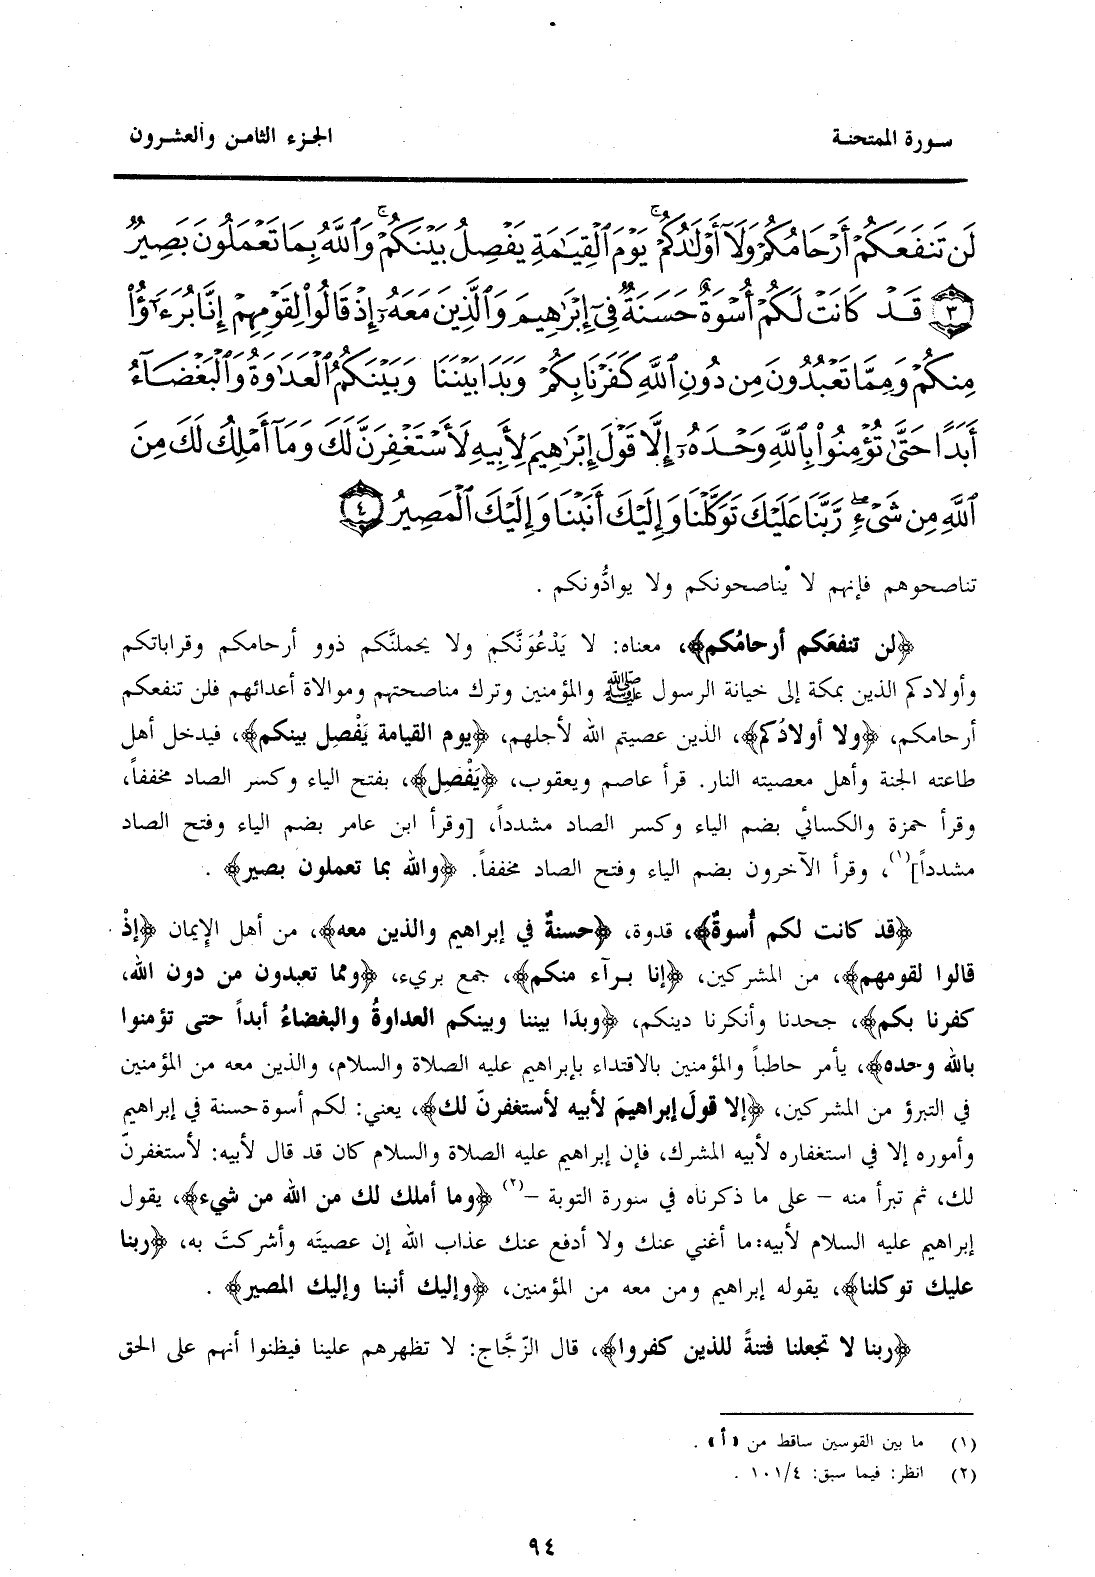 سورة الممتحنة
الجزء الثامن والعشرون
لَن تَنفَعَكُمْ أَرْحَامُكُمْ وَلَآ أَوْلَٰدُكُمْ ۚ يَوْمَ ٱلْقِيَٰمَةِ يَفْصِلُ بَيْنَكُمْ ۚ وَٱللَّهُ بِمَا تَعْمَلُونَ بَصِيرٌ
٣ قَدْ كَانَتْ لَكُمْ أُسْوَةٌ حَسَنَةٌ فِىٓ إِبْرَٰهِيمَ وَٱلَّذِينَ مَعَهُۥٓ إِذْ قَالُوا۟ لِقَوْمِهِمْ إِنَّا بُرَءَٰٓؤُا۟
مِنكُمْ وَمِمَّا تَعْبُدُونَ مِن دُونِ ٱللَّهِ كَفَرْنَا بِكُمْ وَبَدَا بَيْنَنَا وَبَيْنَكُمُ ٱلْعَدَٰوَةُ وَٱلْبَغْضَآءُ
أَبَدًا حَتَّىٰ تُؤْمِنُوا۟ بِٱللَّهِ وَحْدَهُۥٓ إِلَّا قَوْلَ إِبْرَٰهِيمَ لِأَبِيهِ لَأَسْتَغْفِرَنَّ لَكَ وَمَآ أَمْلِكُ لَكَ مِنَ
ٱللَّهِ مِن شَىْءٍ ۖ رَّبَّنَا عَلَيْكَ تَوَكَّلْنَا وَإِلَيْكَ أَنَبْنَا وَإِلَيْكَ ٱلْمَصِيرُ ٤
تناصحوهم فإنهم لا يناصحونكم ولا يوادُّونكم .
﴿لن تنفعَكم أرحامُكم﴾، معناه: لا يَدْعُوَنَّكم ولا يحملنَّكم ذوو أرحامكم وقراباتكم
وأولادكم الذين بمكة إلى خيانة الرسول ﷺ والمؤمنين وترك مناصحتهم وموالاة أعدائهم فلن تنفعكم
أرحامكم، ﴿ولا أولادُكم﴾، الذين عصيتم الله لأجلهم، ﴿يوم القيامة يَفْصِل بينكم﴾، فيدخل أهل
طاعته الجنة وأهل معصيته النار. قرأ عاصم ويعقوب، ﴿يَفْصِل﴾، بفتح الياء وكسر الصاد مخففاً،
وقرأ حمزة والكسائي بضم الياء وكسر الصاد مشدداً، [وقرأ ابن عامر بضم الياء وفتح الصاد
مشدداً](١)، وقرأ الآخرون بضم الياء وفتح الصاد مخففاً. ﴿والله بما تعملون بصير﴾ .
﴿قد كانت لكم أُسوةٌ﴾، قدوة، ﴿حسنةٌ في إبراهيم والذين معه﴾، من أهل الإيمان ﴿إذْ
قالوا لقومهم﴾، من المشركين، ﴿إنا برآء منكم﴾، جمع بريء، ﴿ومما تعبدون من دون الله،
كفرنا بكم﴾، جحدنا وأنكرنا دينكم، ﴿وبدَا بيننا وبينكم العداوةُ والبغضاءُ أبداً حتى تؤمنوا
بالله وحده﴾، يأمر حاطباً والمؤمنين بالاقتداء بإبراهيم عليه الصلاة والسلام، والذين معه من المؤمنين
في التبرؤ من المشركين، ﴿إلا قولَ إبراهيمَ لأبيه لأستغفرنّ لك﴾، يعني: لكم أسوة حسنة في إبراهيم
وأموره إلا في استغفاره لأبيه المشرك، فإن إبراهيم عليه الصلاة والسلام كان قد قال لأبيه: لأستغفرنّ
لك، ثم تبرأ منه – على ما ذكرناه في سورة التوبة –(٢) ﴿وما أملك لك من الله من شيء﴾، يقول
إبراهيم عليه السلام لأبيه: ما أغني عنك ولا أدفع عنك عذاب الله إن عصيتَه وأشركتَ به، ﴿ربنا
عليك توكلنا﴾، يقوله إبراهيم ومن معه من المؤمنين، ﴿وإليك أنبنا وإليك المصير﴾ .
﴿ربنا لا تجعلنا فتنةً للذين كفروا﴾، قال الزَّجَّاج: لا تظهرهم علينا فيظنوا أنهم على الحق
(١) ما بين القوسين ساقط من «أ» .
(٢) انظر: فيما سبق: ١٠١/٤ .
٩٤